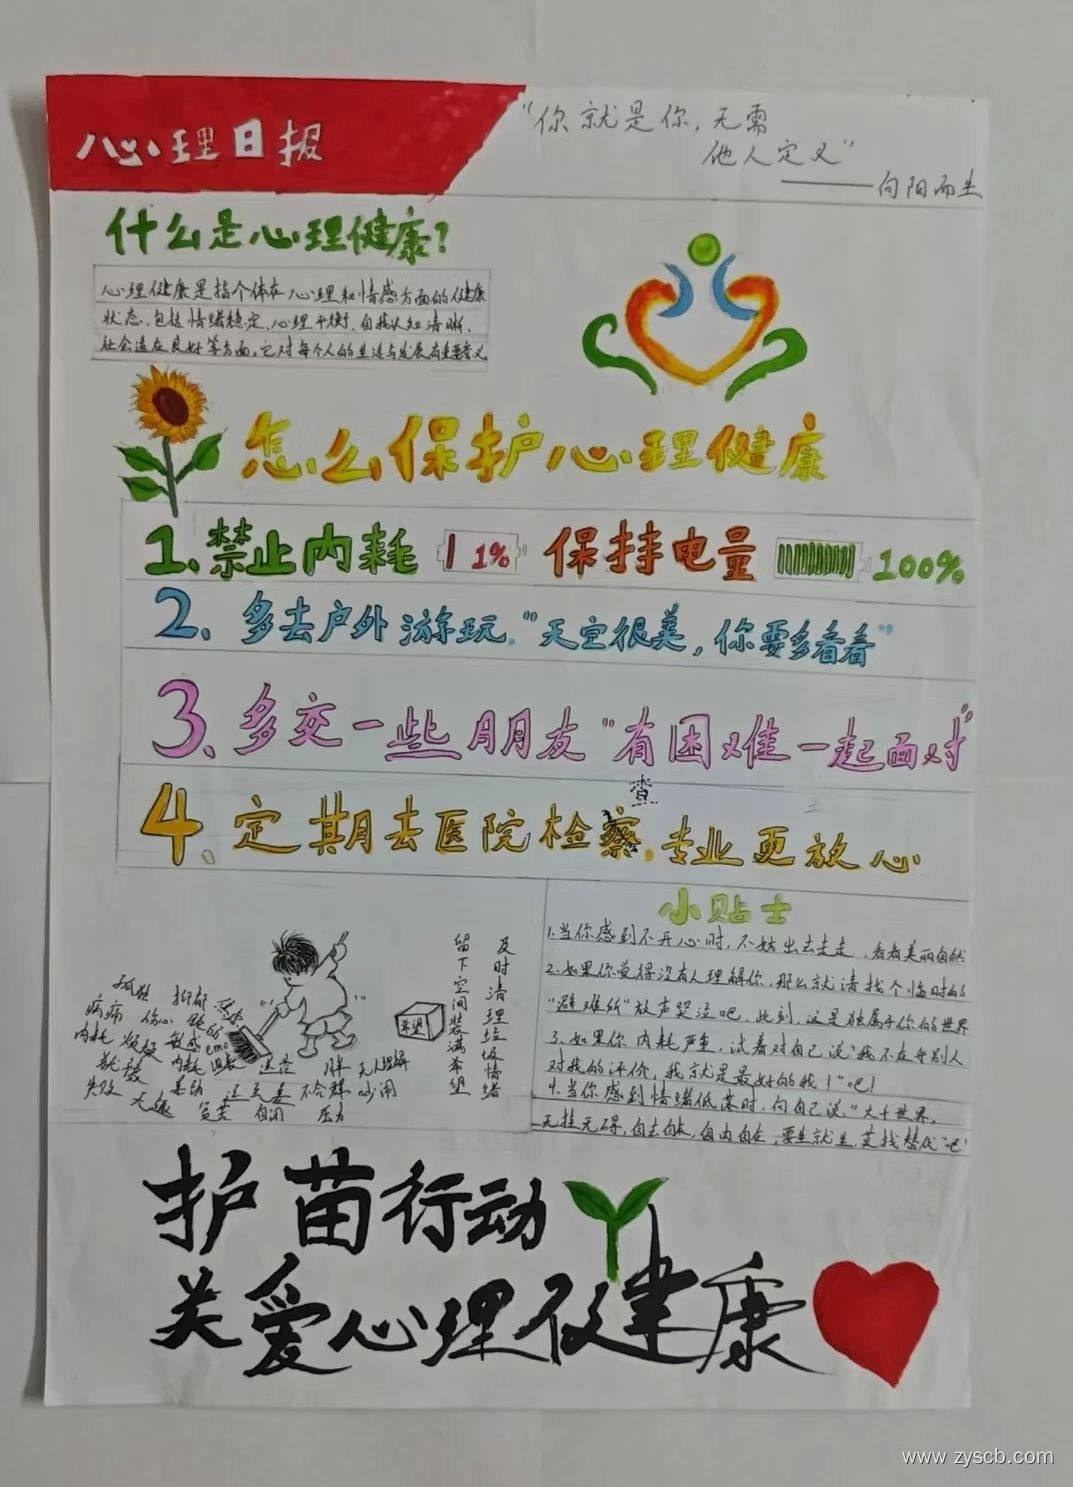 心理日报
"你就是你,无需
他人定义"
——向阳而生
什么是心理健康?
心理健康是指个体在心理和情感方面的健康
状态,包括情绪稳定、心理平衡、自我认知清晰、
社会适应良好等方面。它对每个人的生活与发展有重要意义
怎么保护心理健康
1、禁止内耗 1% 保持电量 100%
2、多去户外游玩。"天空很美,你要多看看"
3、多交一些朋友"有困难一起面对"
查
4、定期去医院检察,专业更放心
及时清理垃圾情绪
留下空间装满希望
希望
孤独 抑郁
病痛 伤心
内耗 烦躁 敏感 emo
内耗 迷茫 胖 无人理解
失败 自卑 不合群 吵闹
自闭 压力
小贴士
1.当你感到不开心时,不妨出去走走,看看美丽自然
2.如果你觉得没有人理解你,那么就请找个临时的
"避难所"放声哭泣吧,此刻,这是独属于你的世界
3.如果你内耗严重,试着对自己说"我不在乎别人
对我的评价,我就是最好的我!"吧!
4.当你感到情绪低落时,向自己说,"大千世界,
无挂无碍,自去自来,自由自在,要生就生,莫找替代"吧!
护苗行动
关爱心理健康
www.zyscb.com